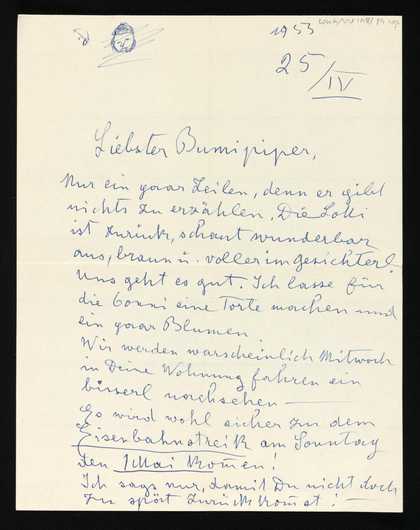 1953
25/IV
Liebster Bumipiper,
Nur ein paar Zeilen, denn es gibt
nichts zu erzählen. Die Lotti
ist zurück, schaut wunderbar
aus, braun u. voller im Gesichterl.
Uns geht es gut. Ich lasse für
die Conni eine Torte machen und
ein paar Blumen
Wir werden warscheinlich Mittwoch
in Deine Wohnung fahren ein
bisserl nachsehen
Es wird wohl sicher zu dem
Eisenbahnstreik am Sonntag
den 1 Mai kom̄en!
Ich sags nur, damit Du nicht doch
zu spät zurück kom̄st!